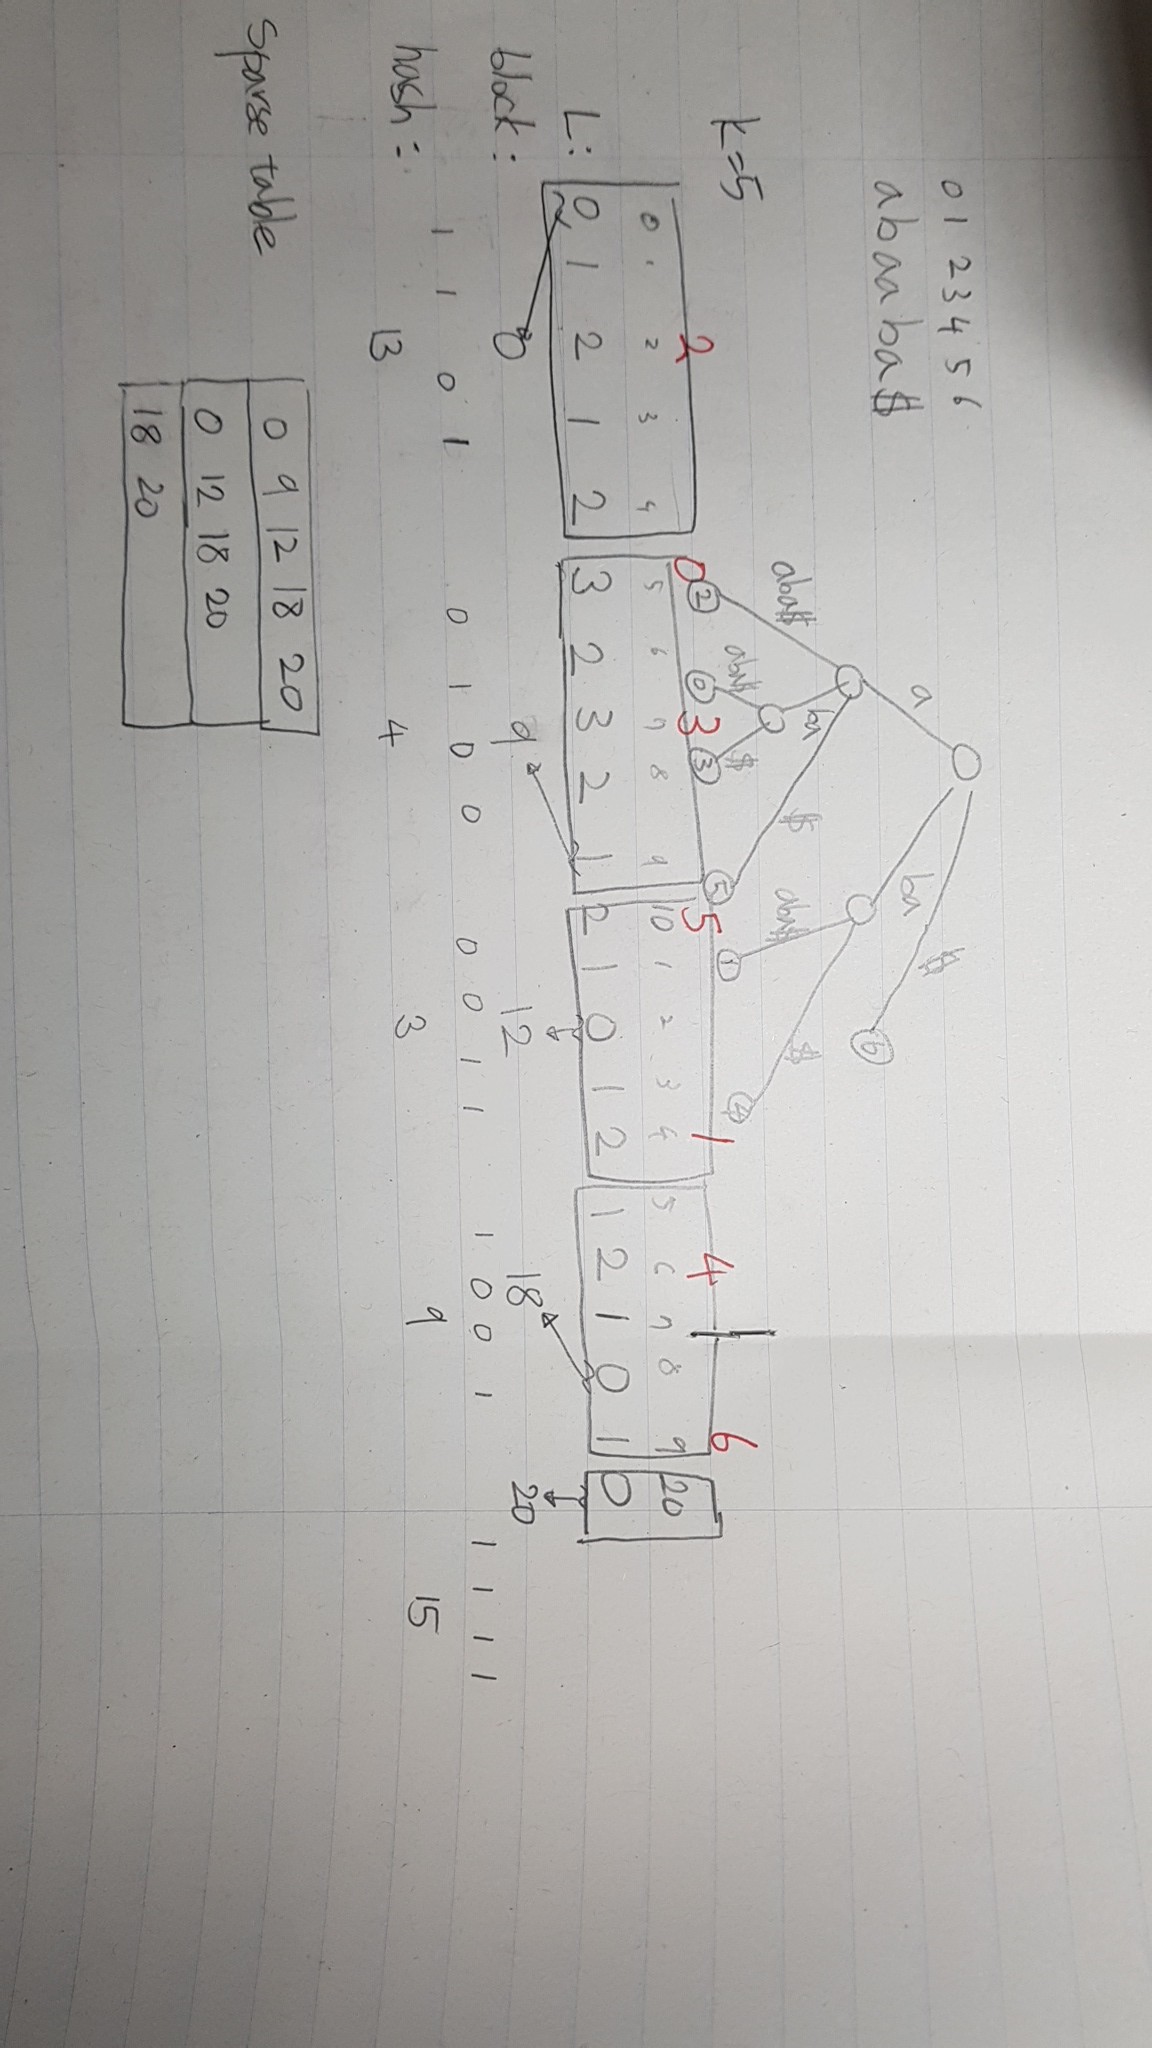 0 1 2 3 4 5 6
a b a a b a $
k=5
a
ba
$
aba$
ba
$
aba$
$
aba$
$
6
2 0 3 5 1 4
2 0 3 5 1 4 6
0 1 2 3 4 5 6 7 8 9 10 1 2 3 4 5 6 7 8 9 20
L: 0 1 2 1 2 3 2 3 2 1 2 1 0 1 2 1 2 1 0 1 0
block: 0 9 12 18 20
1 1 0 1 0 1 0 0 0 0 1 1 1 0 0 1 1 1 1 1
hash: 13 4 3 9 15
Sparse table
0 9 12 18 20
0 12 18 20
18 20